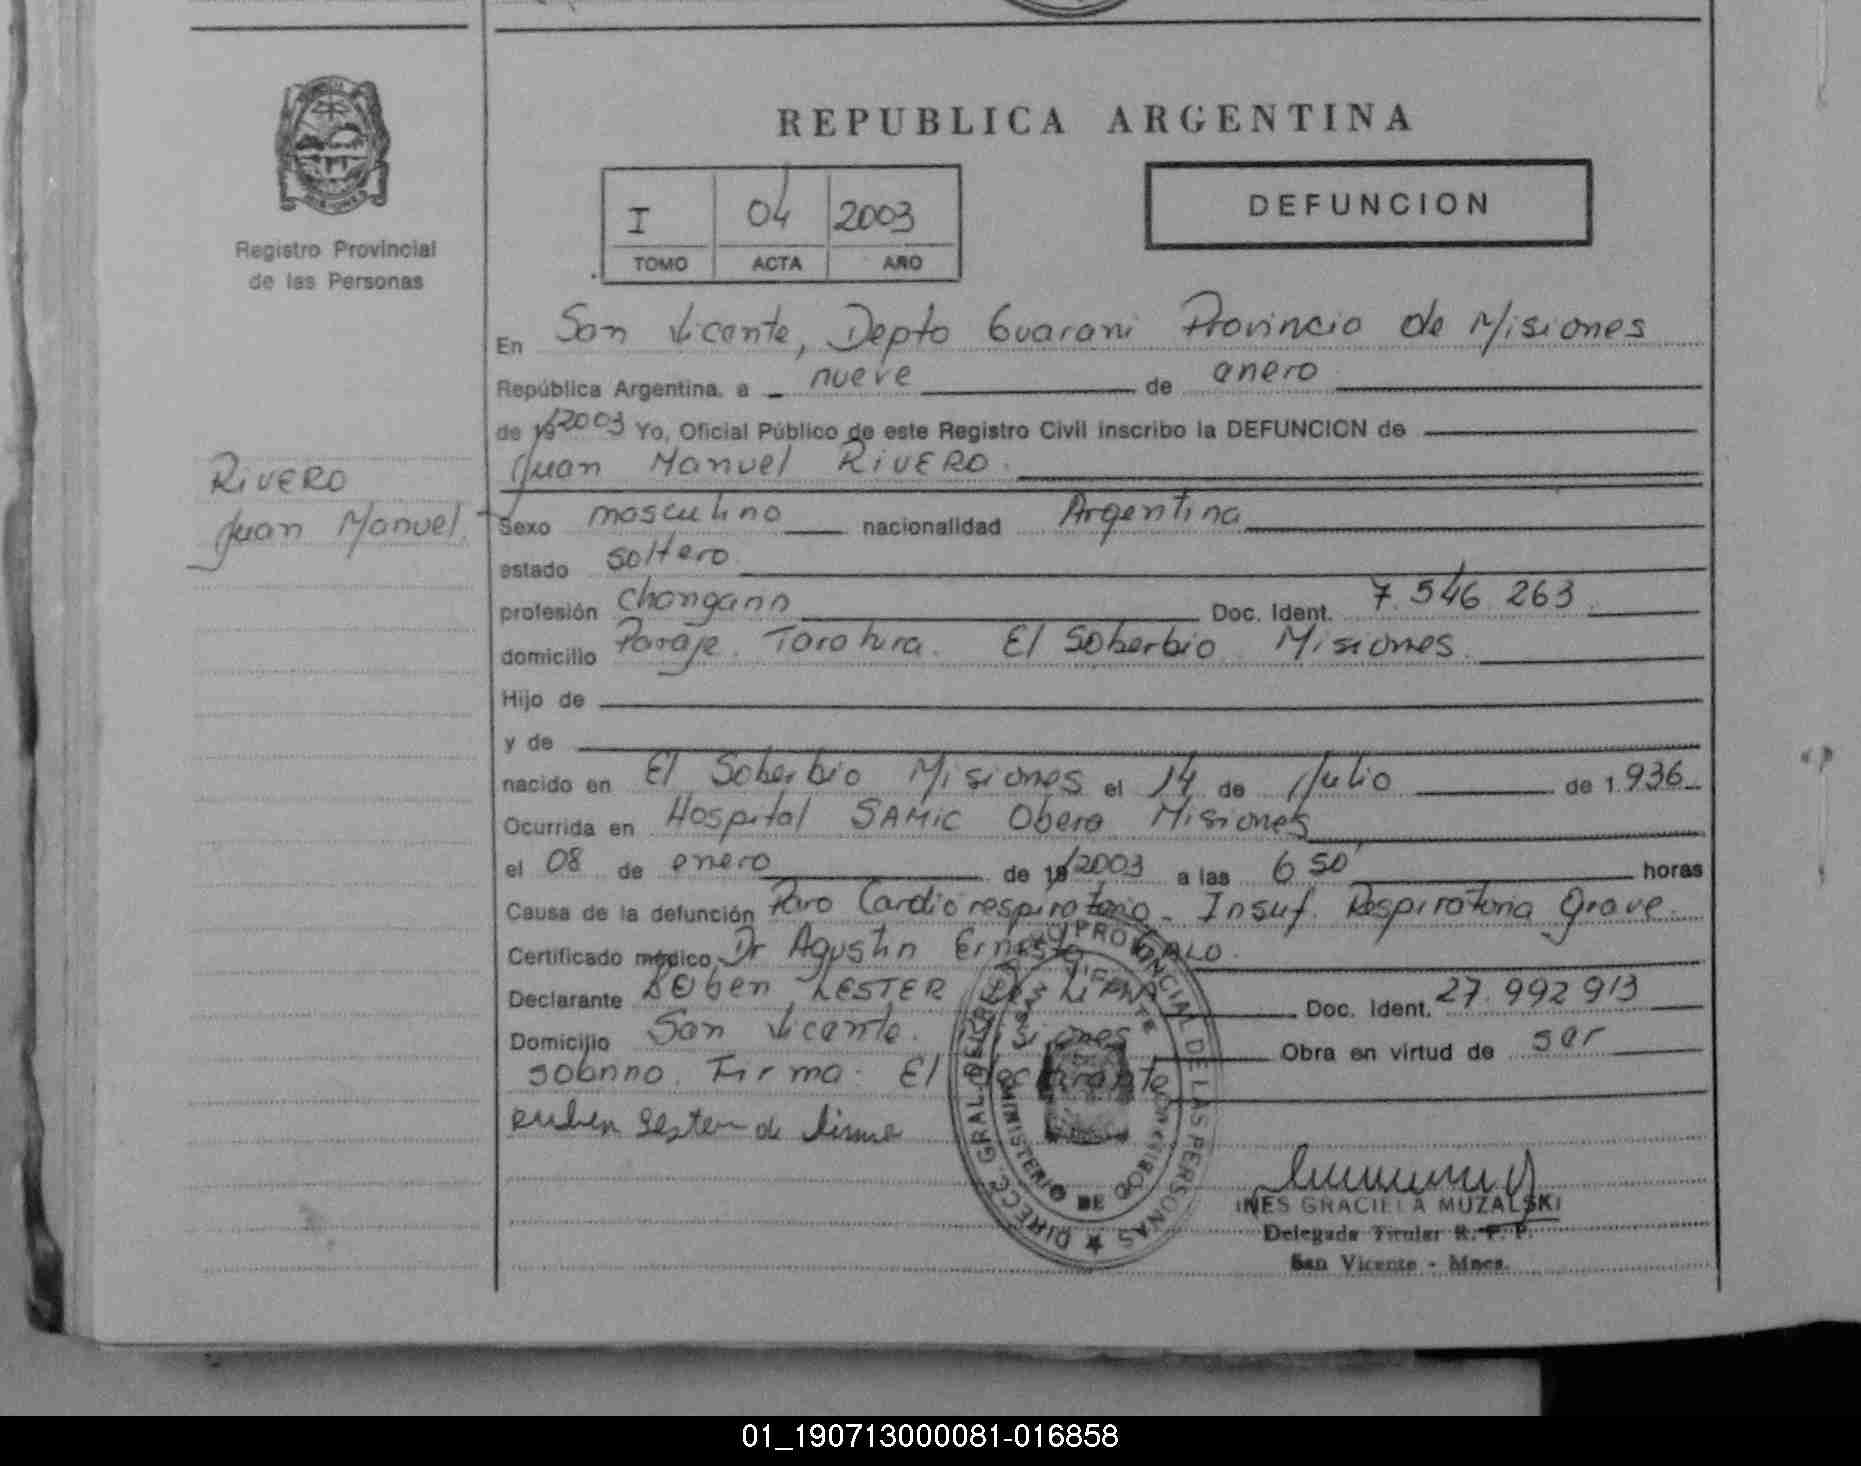 REPUBLICA ARGENTINA
Registro Provincial
de las Personas
I 04 2003
TOMO ACTA AÑO
DEFUNCION
En San Vicente, Depto Guarani Provincia de Misiones
República Argentina, a nueve de enero
de 19 2003 Yo, Oficial Público de este Registro Civil inscribo la DEFUNCION de
Juan Manuel RIVERO.
RIVERO
Juan Manuel.
Sexo masculino nacionalidad Argentina
estado soltero
profesión Doc. Ident. 7.546.263
domicilio Paraje El Soberbio Misiones.
Hijo de
y de
nacido en El Soberbio Misiones el 14 de Julio de 1.936
Ocurrida en Hospital SAMIC Obera Misiones
el 08 de enero de 19 2003 a las 6 50 horas
Causa de la defunción Paro Cardio respiratorio - Insuf. Respiratoria Grave.
Certificado médico Dr Agustin Ernesto
Declarante LESTER De LIMA Doc. Ident. 27.992 913
Domicilio San Vicente. Misiones Obra en virtud de ser
sobrino. Firma: El declarante
DIRECC. GRAL. DEL REGISTRO PROVINCIAL DE LAS PERSONAS
MINISTERIO DE GOBIERNO
SAN VICENTE
INES GRACIELA MUZALSKI
Delegada Titular R. P. P.
San Vicente - Mnes.
01_190713000081-016858